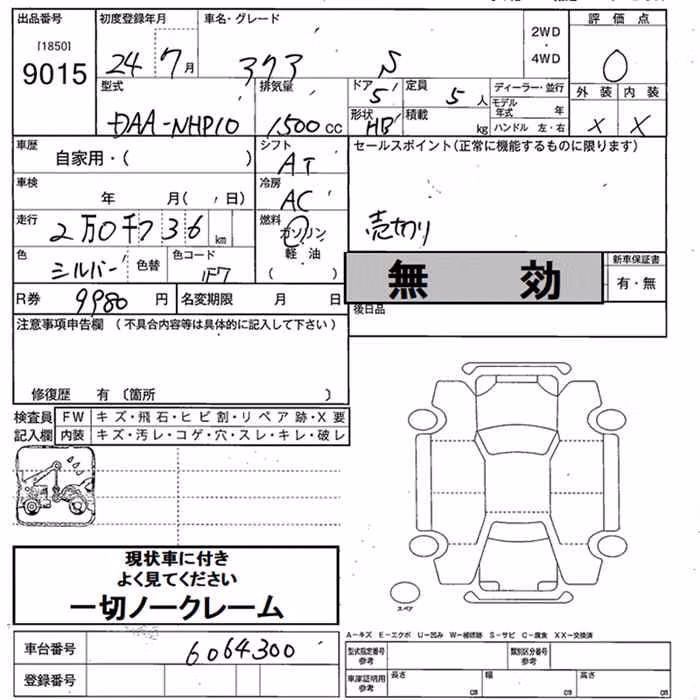 出品番号 初度登録年月 車名・グレード 評価点
[1850]
9015
24 7月
2WD
・
4WD
0
外装 内装
X X
型式 排気量 ドア 定員 ディーラー・並行
DAA-NHP10 1,500cc 5 5人
モデル年式 年
形状 HB 積載 kg ハンドル 左・右
車歴 シフト セールスポイント(正常に機能するものに限ります)
自家用・( ) AT
車検 冷房
年 月( ・ 日) AC
走行 燃料
2万0千736km ガソリン
軽油
( )
売切り
色 色替 色コード
シルバー 1F7
無効
新車保証書
有・無
R券 9980円 名変期限 月 日
後日品
注意事項申告欄 (不具合内容等は具体的に記入して下さい)
修復歴 有 〔箇所 〕
検査員 FW キズ・飛石・ヒビ割・リペア跡・X要
記入欄 内装 キズ・汚レ・コゲ・穴・スレ・キレ・破レ
現状車に付き
よく見てください
一切ノークレーム
スペア
A-キズ E-エクボ U-凹み W-補修跡 S-サビ C-腐食 XX-交換済
車台番号 6064300
登録番号
型式指定番号 参考 類別区分番号 参考
車庫証明用 参考 長さ cm 幅 cm 高さ cm